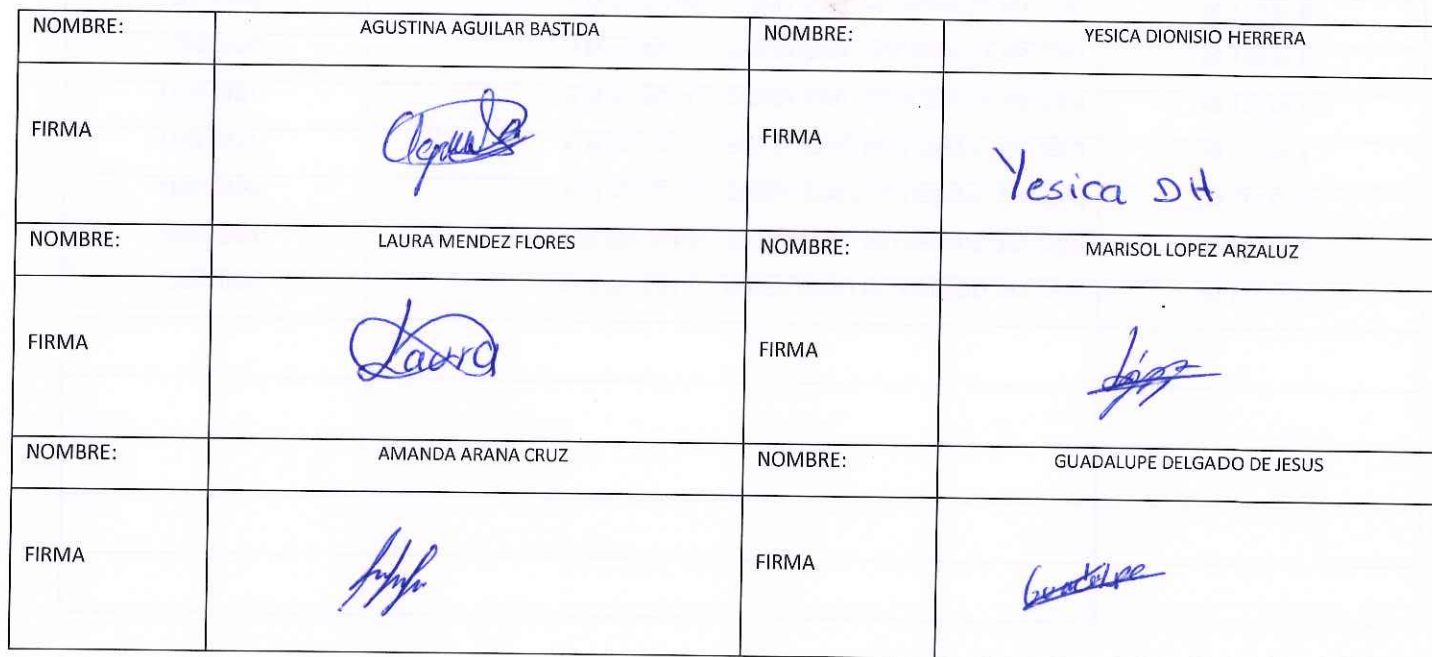 NOMBRE: AGUSTINA AGUILAR BASTIDA NOMBRE: YESICA DIONISIO HERRERA
FIRMA FIRMA Yesica DH
NOMBRE: LAURA MENDEZ FLORES NOMBRE: MARISOL LOPEZ ARZALUZ
FIRMA Laura FIRMA López
NOMBRE: AMANDA ARANA CRUZ NOMBRE: GUADALUPE DELGADO DE JESUS
FIRMA FIRMA